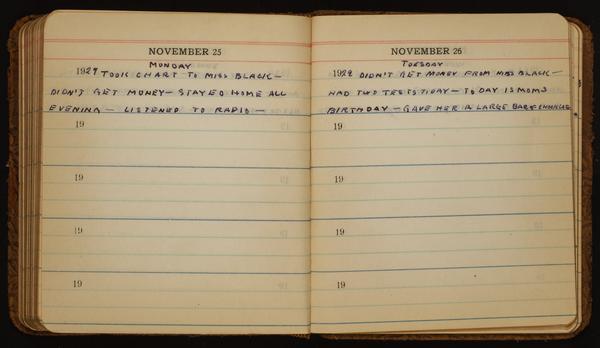 NOVEMBER 25
MONDAY
1929 TOOK CHART TO MISS BLACK—
DIDN'T GET MONEY— STAYED HOME ALL
EVENING — LISTENED TO RADIO —
19
19
19
19
NOVEMBER 26
TUESDAY
1929 DIDN'T GET MONEY FROM MISS BLACK—
HAD TWO TESTS TODAY — TO DAY IS MOMS
BIRTHDAY — GAVE HER A LARGE BAR
19
19
19
19